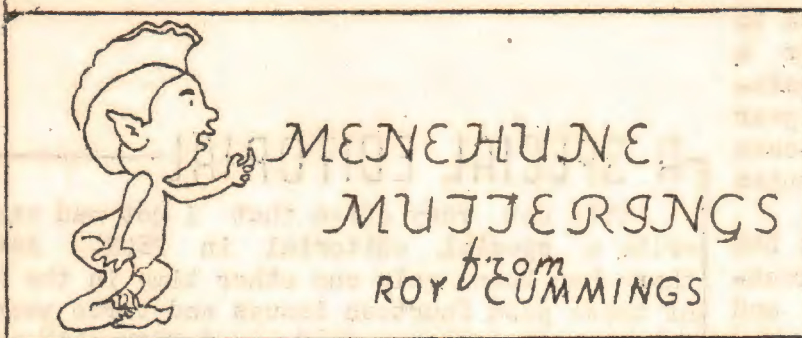 MENEHUNE
MUTTERINGS
from
ROY CUMMINGS